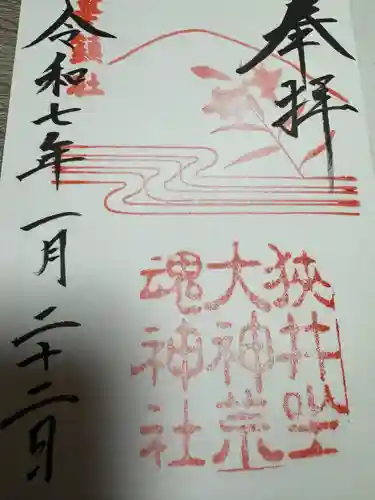 奉拝
狹井坐
大神荒
魂神社
華鎮社
令和七年一月二十二日